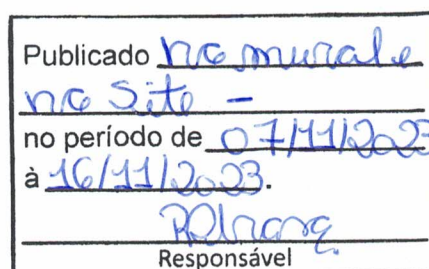 Publicado no mural e
no Site -
no período de 07/11/2023
à 16/11/2023.
Responsável